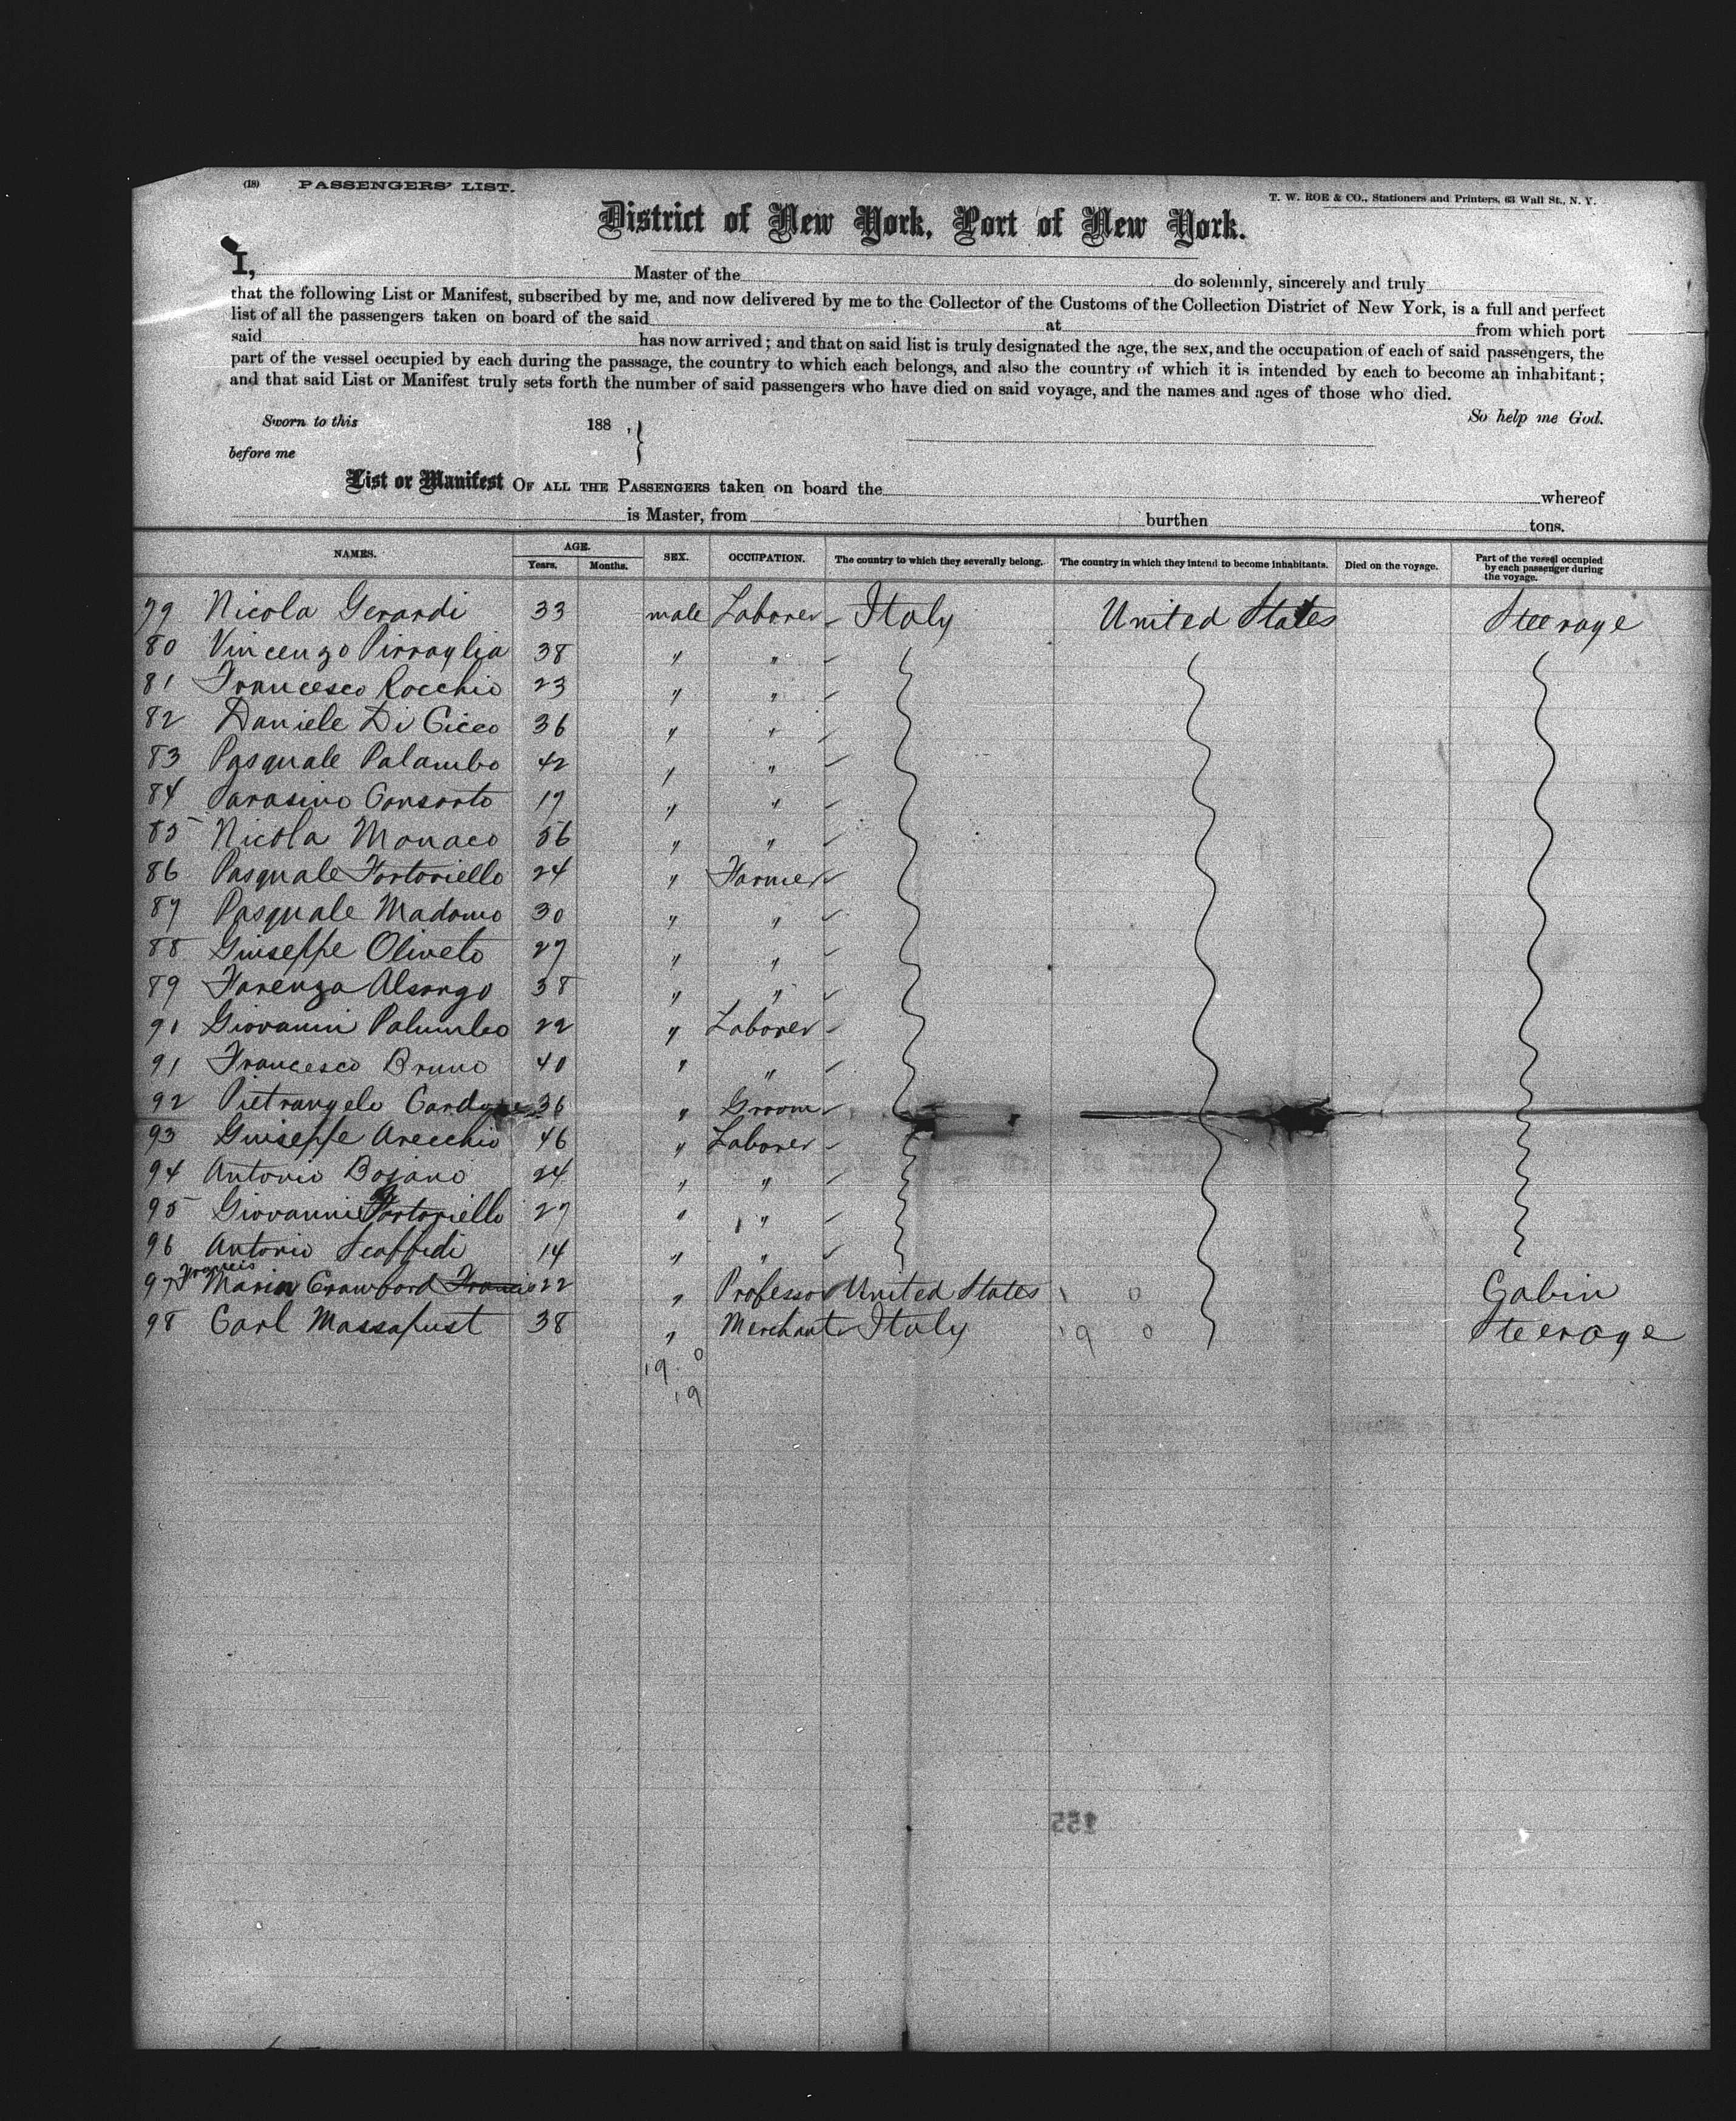 (18) PASSENGERS' LIST.
T. W. ROE & CO., Stationers and Printers, 63 Wall St., N. Y.
District of New York, Port of New York.
I, Master of the do solemnly, sincerely and truly
that the following List or Manifest, subscribed by me, and now delivered by me to the Collector of the Customs of the Collection District of New York, is a full and perfect
list of all the passengers taken on board of the said at from which port
said has now arrived; and that on said list is truly designated the age, the sex, and the occupation of each of said passengers, the
part of the vessel occupied by each during the passage, the country to which each belongs, and also the country of which it is intended by each to become an inhabitant;
and that said List or Manifest truly sets forth the number of said passengers who have died on said voyage, and the names and ages of those who died.
Sworn to this 188 , So help me God.
before me
List or Manifest OF ALL THE PASSENGERS taken on board the whereof
is Master, from burthen tons.
NAMES. AGE. Years. Months. SEX. OCCUPATION. The country to which they severally belong. The country in which they intend to become inhabitants. Died on the voyage. Part of the vessel occupied by each passenger during the voyage.
79 Nicola Gerardi 33 male Laborer Italy United States Steerage
80 Vincenzo Pirraglia 38 " "
81 Francesco Rocchio 23 " "
82 Daniele Di Cicco 36 " "
83 Pasquale Palambo 42 " "
84 Consorto 19 " "
85 Nicola Monaco 56 " "
86 Pasquale Tortoriello 24 " Farmer
87 Pasquale Madomo 30 " "
88 Giuseppe Oliveto 27 " "
89 38 " "
91 Giovanni Palumbo 22 " Laborer
91 Francesco Bruno 40 " "
92 Pietrangelo 36 " Groom
93 Giuseppe Arecchio 46 " Laborer
94 Antonio Bojano 24 " "
95 Giovanni Tortoriello 27 " "
96 Antonio Scaffidi 14 " "
97 Francis Marion Crawford Francis 22 " Professor United States 1 0 Cabin
98 Carl Massapust 38 " Merchant Italy 19 0 Steerage
19 0
19
155